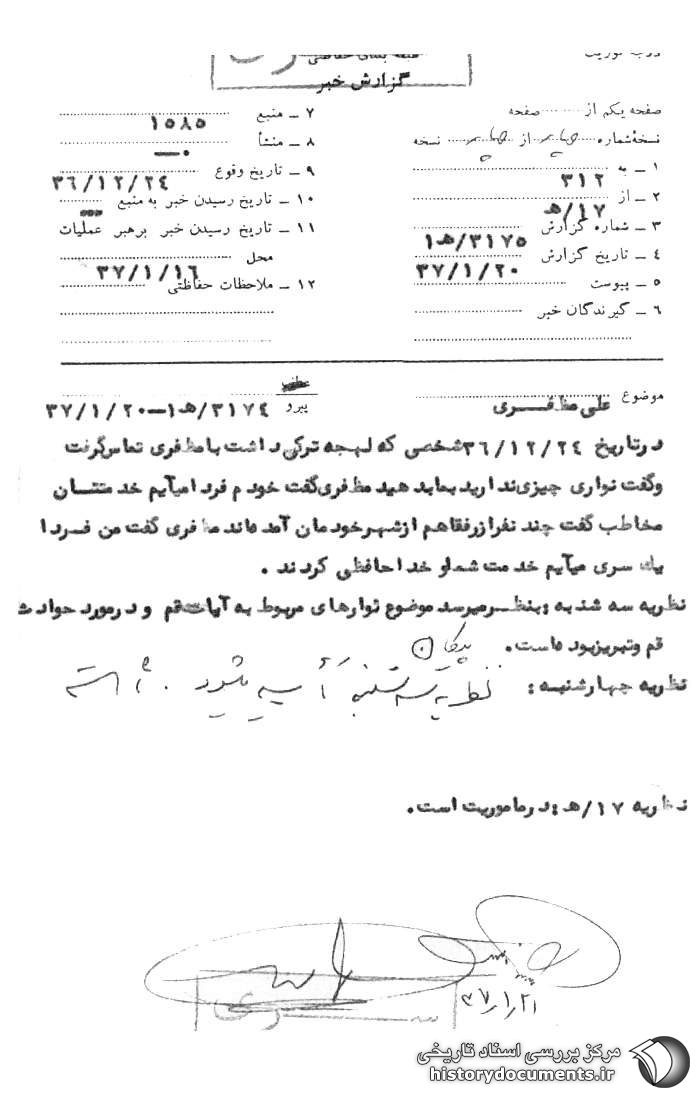 درجه فوریت
طبقه بندی حفاظتی
گزارش خبر
صفحه یکم از صفحه
نسخهٔ شماره چهار از چهار نسخه
۱ – به ۳۱۲
۲ – از ۱۷/هـ
۳ – شماره گزارش ۳۱۷۵/هـ۱
۴ – تاریخ گزارش ۳۷/۱/۲۰
۵ – پیوست
۶ – گیرندگان خبر
۷ – منبع ۱۵۸۵
۸ – منشأ
۹ – تاریخ وقوع ۳۶/۱۲/۲۴
۱۰ – تاریخ رسیدن خبر به منبع
۱۱ – تاریخ رسیدن خبر برهبر عملیات
محل ۳۷/۱/۱۶
۱۲ – ملاحظات حفاظتی
موضوع علی مظفری
عطف
پیرو ۳۱۷۴/هـ۱–۳۷/۱/۲۰
در تاریخ ۳۶/۱۲/۲۴ شخصی که لهجه ترکی داشت با مظفری تماس گرفت
و گفت نواری چیزی ندارید بما بدهید مظفری گفت خودم فردا میآیم خدمتتان
مخاطب گفت چند نفر از رفقا هم از شهر خودمان آمده اند مظفری گفت من فردا
یک سری میآیم خدمت شما و خداحافظی کردند .
نظریه سه شنبه : بنظر میرسد موضوع نوارهای مربوط به آیات قم و در مورد حوادث
قم و تبریز بوده است. پیکان
نظریه چهارشنبه : نظریه سه شنبه تأیید میشود .
نظریه ۱۷/هـ : در ماموریت است.
۳۷/۱/۲۱
سری
مرکز بررسی اسناد تاریخی
historydocuments.ir